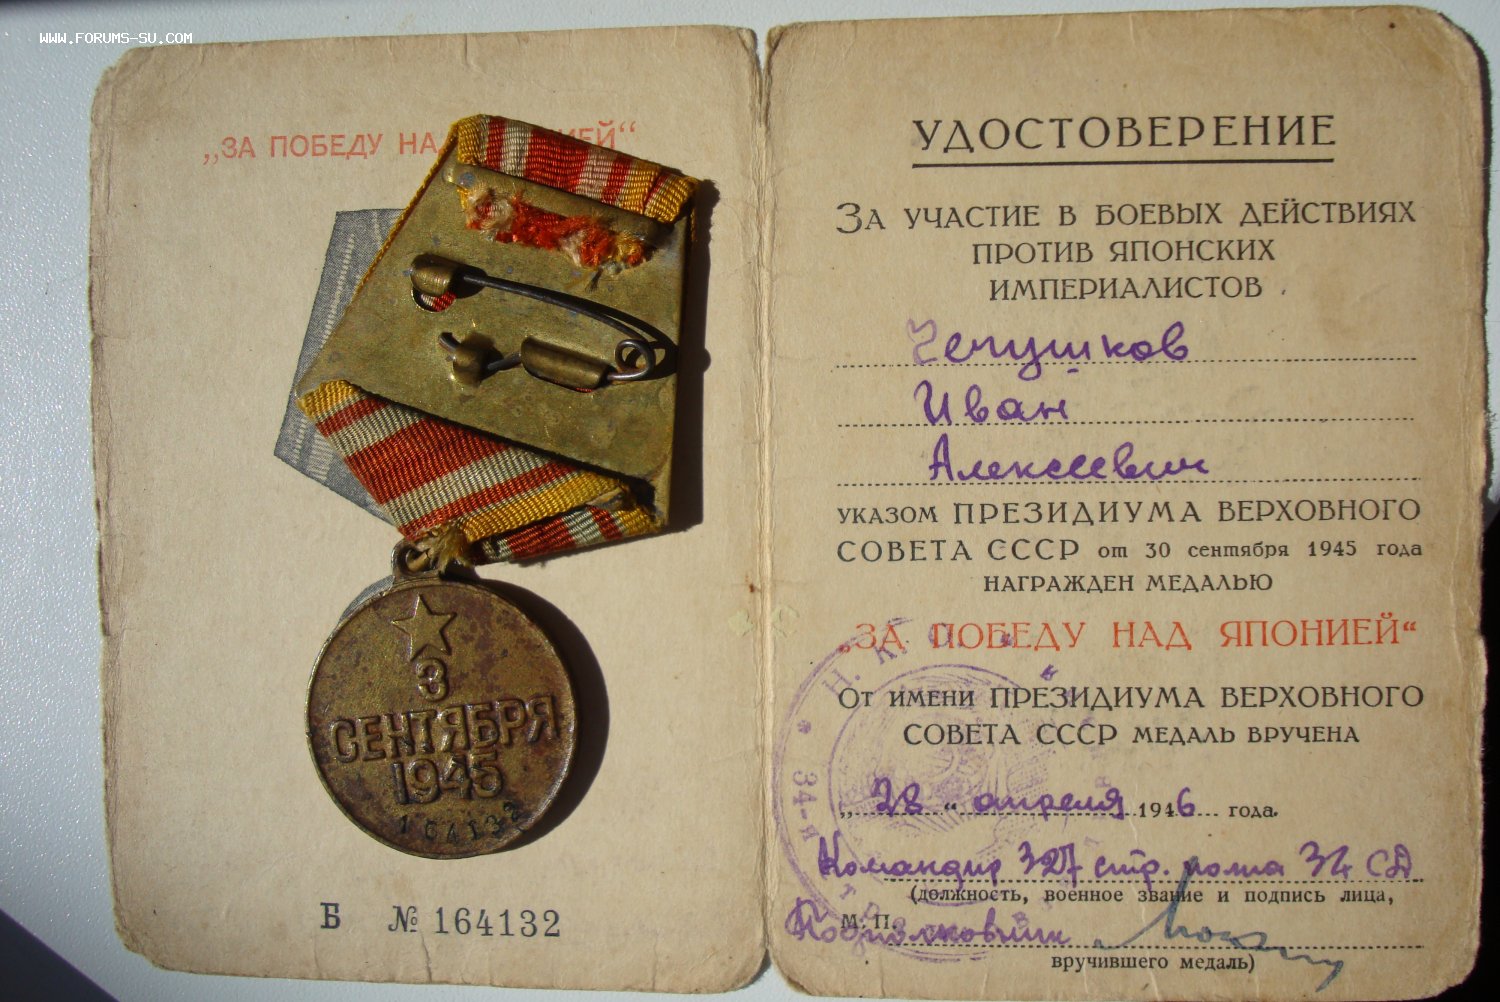 WWW.FORUMS-SU.COM
„ЗА ПОБЕДУ НАД ЯПОНИЕЙ“
3
СЕНТЯБРЯ
1945
164132
Б № 164132
УДОСТОВЕРЕНИЕ
ЗА УЧАСТИЕ В БОЕВЫХ ДЕЙСТВИЯХ
ПРОТИВ ЯПОНСКИХ
ИМПЕРИАЛИСТОВ
Чепушков
Иван
Алексеевич
УКАЗОМ ПРЕЗИДИУМА ВЕРХОВНОГО
СОВЕТА СССР от 30 сентября 1945 года
НАГРАЖДЕН МЕДАЛЬЮ
„ЗА ПОБЕДУ НАД ЯПОНИЕЙ“
ОТ ИМЕНИ ПРЕЗИДИУМА ВЕРХОВНОГО
СОВЕТА СССР МЕДАЛЬ ВРУЧЕНА
„28“ апреля 1946 года.
Командир 327 стр. полка 34 СД
(должность, военное звание и подпись лица,
М. П.
вручившего медаль)
Н. К. О.
34-я